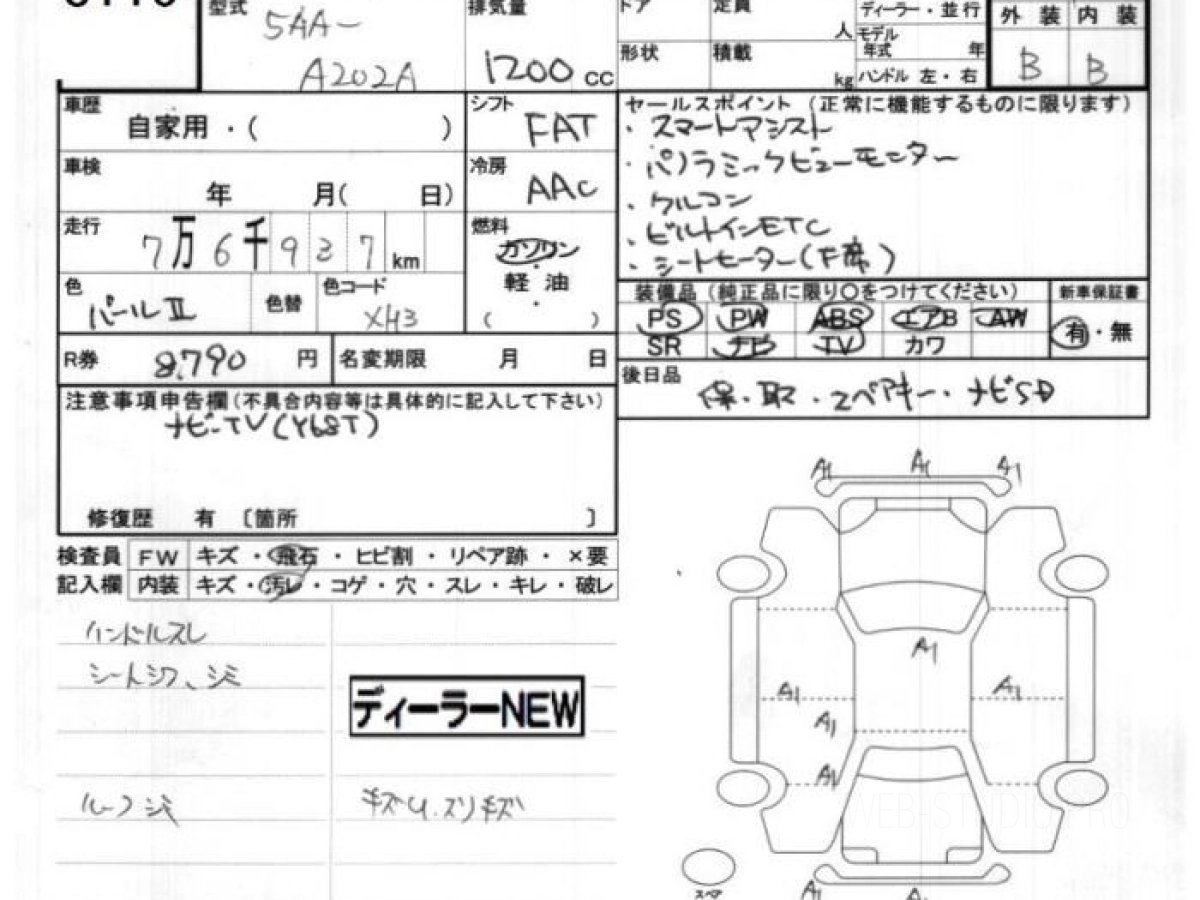 型式 5AA-
A202A
排気量
1200 cc
ドア
定員 人
形状
積載 kg
ディーラー・並行
モデル年式 年
ハンドル 左・右
外装 内装
B B
車歴
自家用・( )
シフト
FAT
車検
年 月( 日)
冷房
AAC
走行
7万6千937km
燃料
ガソリン
・
軽油
・
( )
色
パールⅡ
色替
色コード
XH3
R券 8,790 円
名変期限 月 日
セールスポイント (正常に機能するものに限ります)
・スマートアシスト
・パノラミックビューモニター
・クルコン
・ビルトインETC
・シートヒーター(F席)
装備品 (純正品に限り○をつけてください)
新車保証書
PS PW ABS エアB AW
SR ナビ TV カワ
有・無
後日品
保・取・スペアキー・ナビSD
注意事項申告欄(不具合内容等は具体的に記入して下さい)
ナビーTV(Y68T)
修復歴 有 〔箇所 〕
検査員 FW キズ・飛石・ヒビ割・リペア跡・×要
記入欄 内装 キズ・汚レ・コゲ・穴・スレ・キレ・破レ
ハンドルスレ
シートシワ、シミ
ディーラーNEW
ルーフシミ
キズU.スリキズ
A1 A1 A1
A1
A1 A1
A1
A1
A1 A1
スペア
WEB-STUDIO.PRO